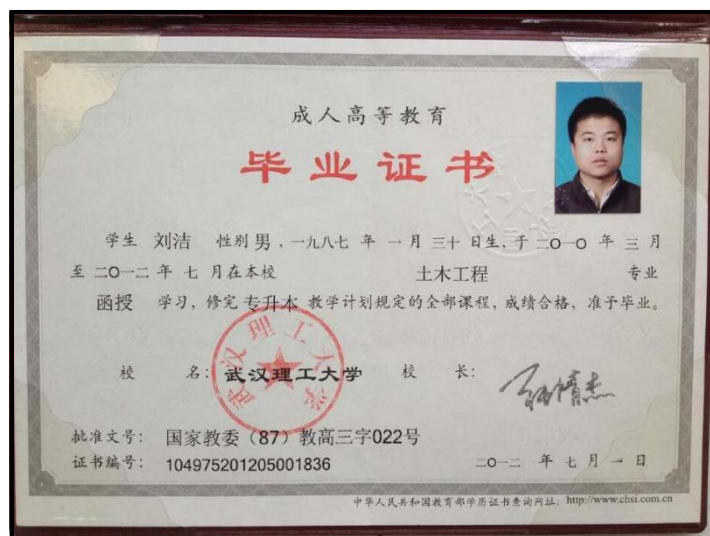 成人高等教育
毕业证书
学生 刘洁 性别 男，一九八七 年 一 月 三十 日生，于 二〇一〇 年 三 月
至 二〇一二 年 七 月在本校 土木工程 专业
函授 学习，修完 专升本 教学计划规定的全部课程，成绩合格，准予毕业。
武汉理工大学
校 名：武汉理工大学 校 长：
批准文号： 国家教委（87）教高三字022号
证书编号： 104975201205001836 二〇一二 年 七 月 一 日
中华人民共和国教育部学历证书查询网址：http://www.chsi.com.cn